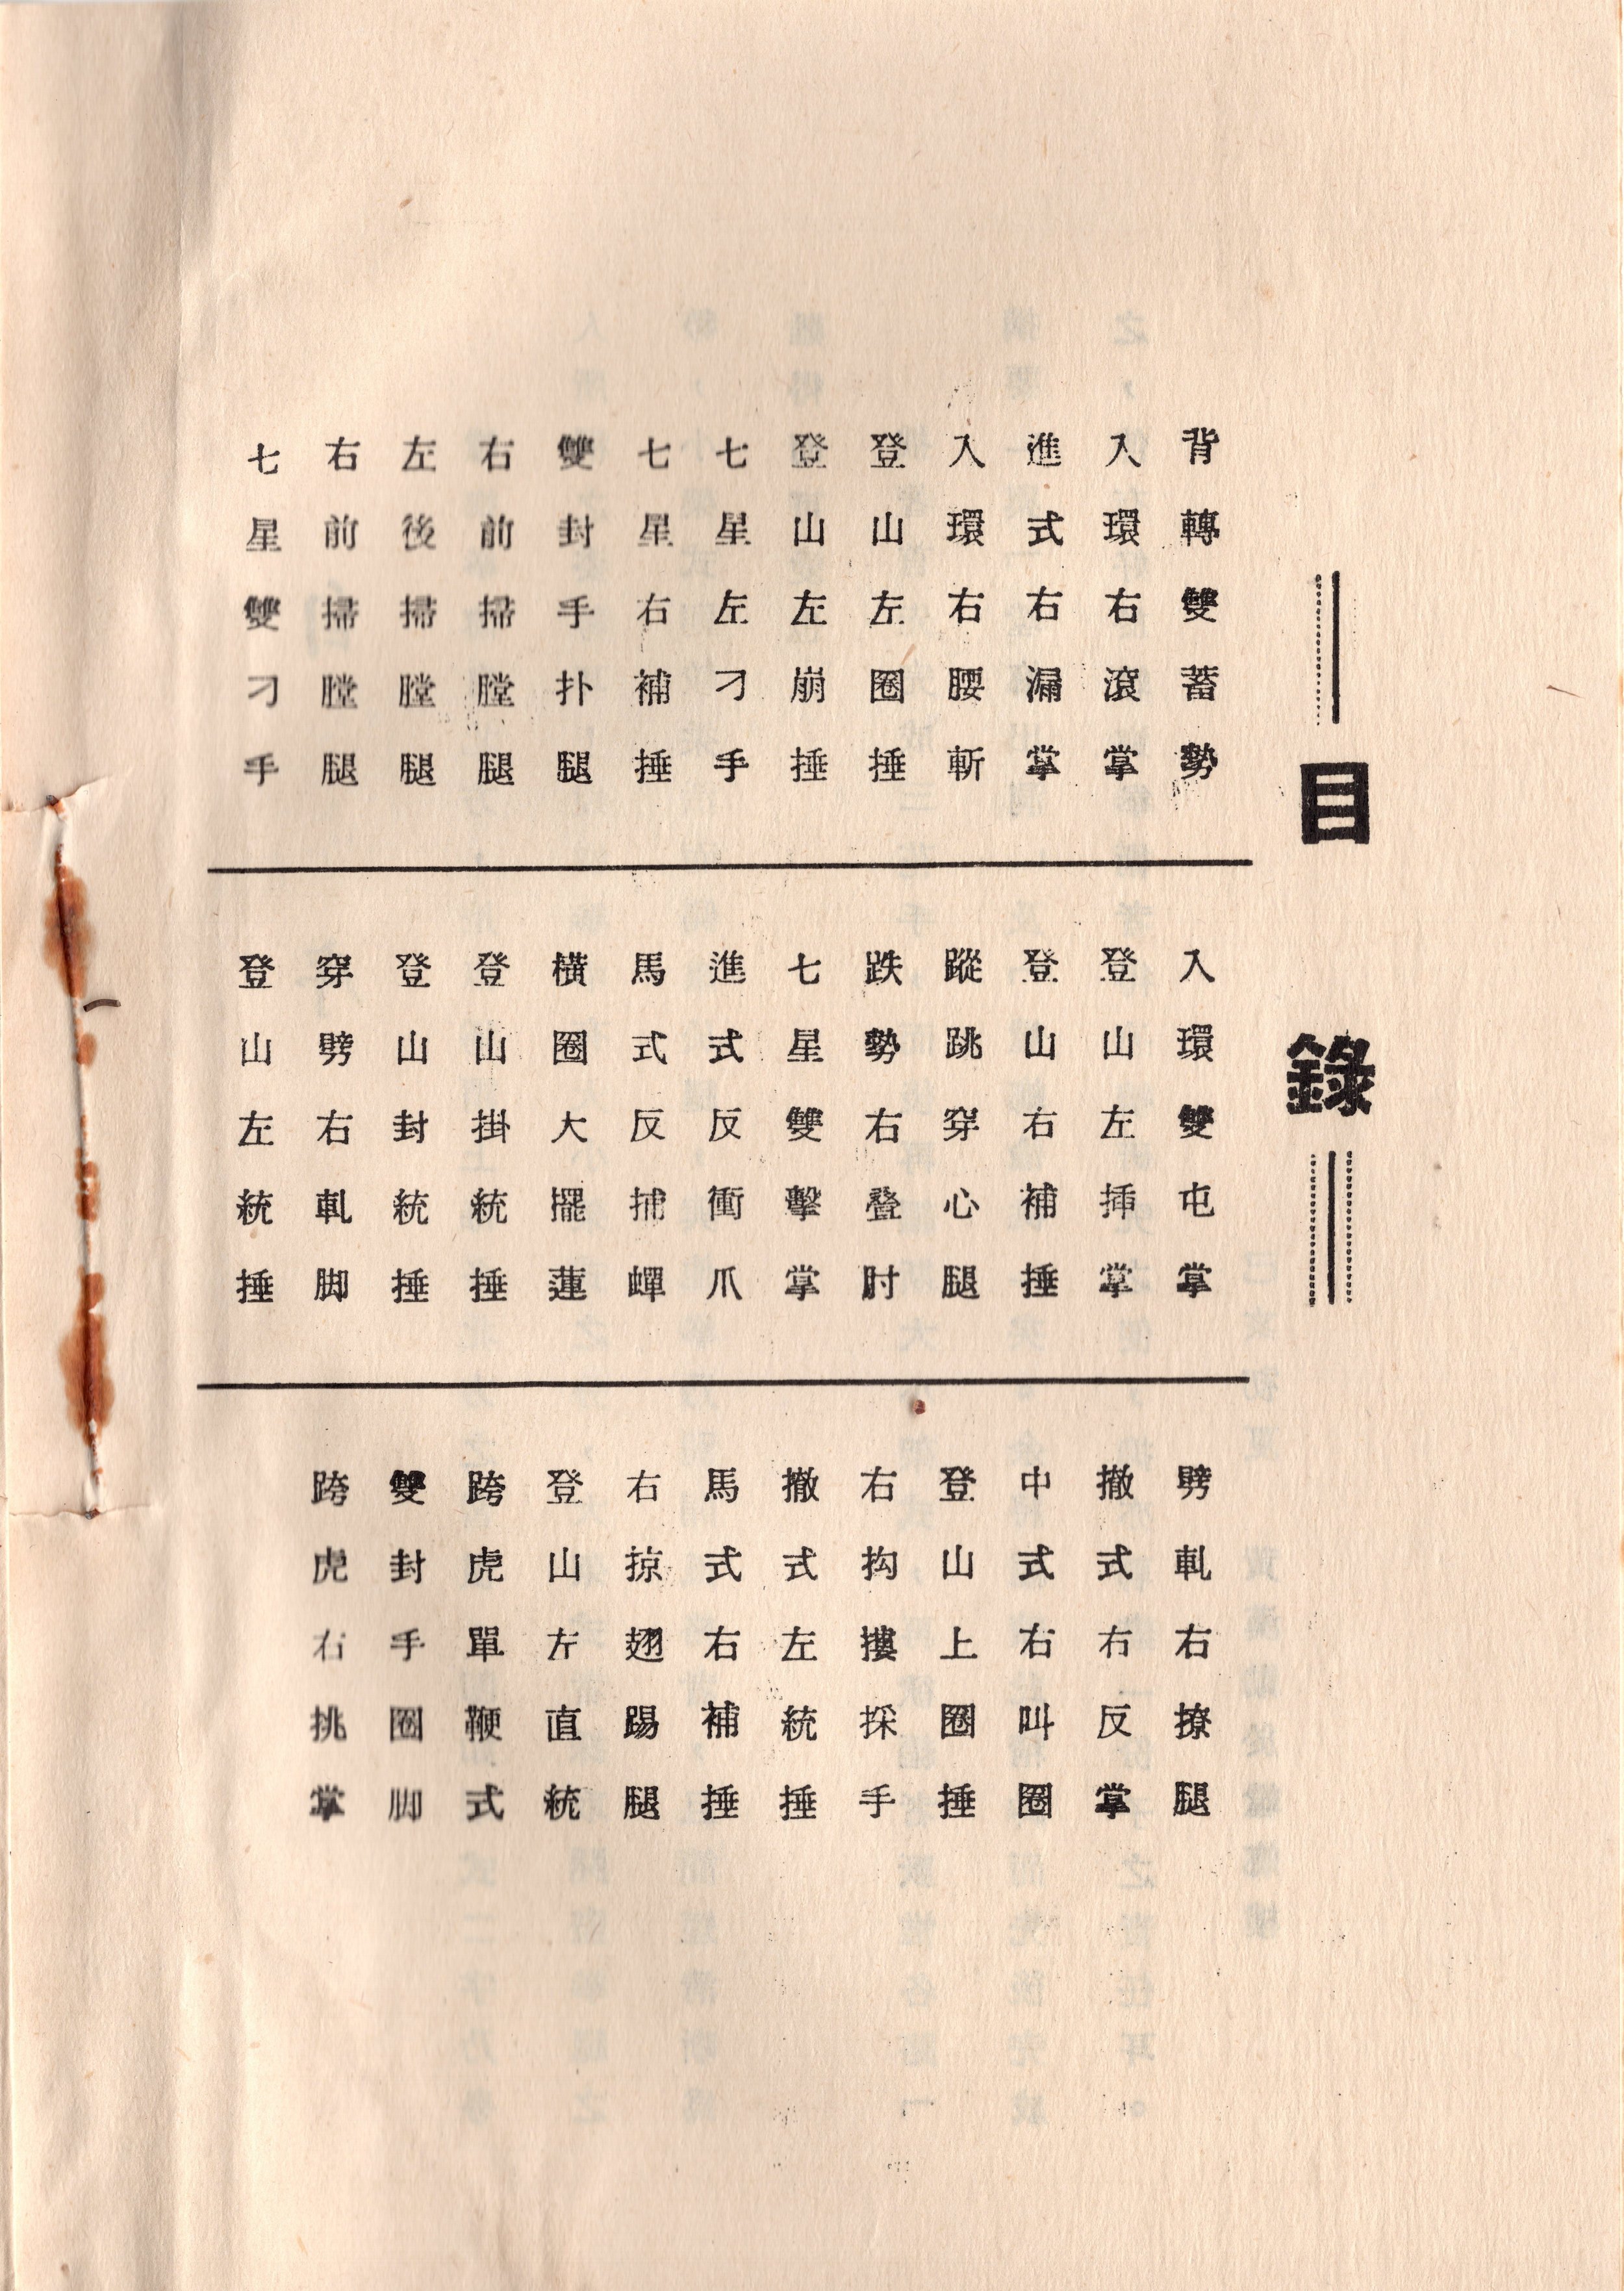 目錄
背轉雙蓄勢
入環右滾掌
進式右漏掌
入環右腰斬
登山左圈捶
登山左崩捶
七星左刁手
七星右補捶
雙封手扑腿
右前掃膛腿
左後掃膛腿
右前掃膛腿
七星雙刁手
入環雙屯掌
登山左揷掌
登山右補捶
蹤跳穿心腿
跌勢右叠肘
七星雙擊掌
進式反衝爪
馬式反捕蟬
橫圈大擺蓮
登山掛統捶
登山封統捶
穿劈右軋脚
登山左統捶
劈軋右撩腿
撤式右反掌
中式右叫圈
登山上圈捶
右抅摟採手
撤式左統捶
馬式右補捶
右掠翅踢腿
登山左直統
跨虎單鞭式
雙封手圈脚
跨虎右挑掌